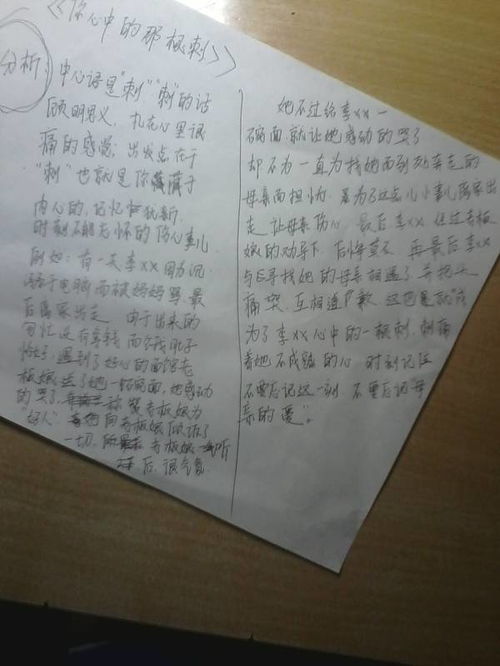 《你心中的那根刺》
分析:
中心语是"刺""刺"的话
顾明思义，扎在心里很
痛的感觉；出发点在于
"刺"也就是你藏于
内心的，记忆犹新，
时刻不能忘怀的伤心事儿
例如：有一天李XX因为沉
于电脑而被妈妈骂，最
后离家出走 由于出来的
匆忙没有拿钱 而
遇到了好心的面馆老
板娘送了她一碗面，她感动
的哭了，称赞老板娘为
"好人" 向老板娘
一切。老板娘听
后，很气
她不过给李XX一
碗面就让她感动的哭了
却不为一直为找她而到处奔走的
母亲而担忧，是为了这点儿小事儿离家出
走 让母亲伤心，最后李XX经过老板
娘的劝导下，后悔莫及 再最后李XX
与自寻找她的母亲相遇了 并抱头
痛哭，互相道了歉，这也是就"成
为了李XX心中的一根刺，刺痛
着她不成熟的心 时刻记住
不要忘记这一刻 不要忘记母
亲的爱"。